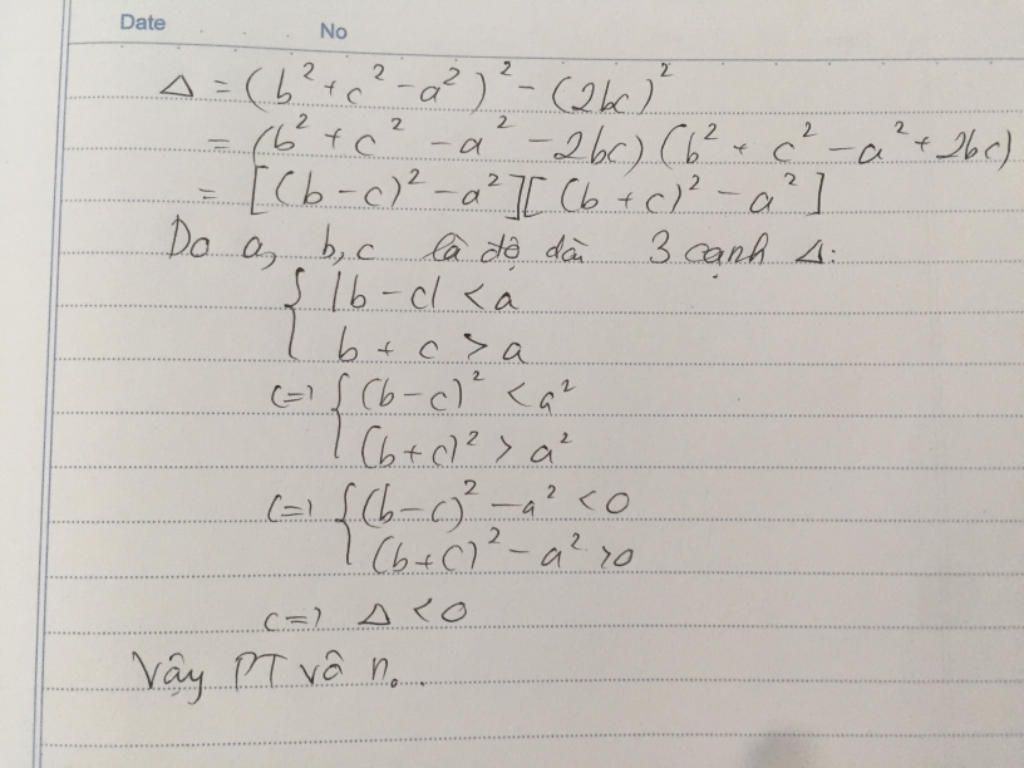 Date No
Δ = (b² + c² - a²)² - (2bc)²
= (b² + c² - a² - 2bc)(b² + c² - a² + 2bc)
= [(b - c)² - a²][(b + c)² - a²]
Do a, b, c là độ dài 3 cạnh Δ:
{ |b - c| < a
b + c > a
<=> { (b - c)² < a²
(b + c)² > a²
<=> { (b - c)² - a² < 0
(b + c)² - a² > 0
<=> Δ < 0
Vậy PT vô n₀.